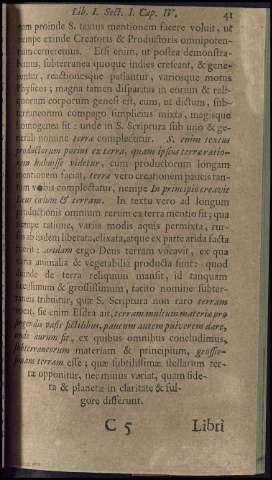 Lib. I. Sect. I. Cap. IV. 41
proinde S. textus mentionem facere voluit, ut
nempe exinde Creatoris & Productoris omnipoten-
Etsi enim, ut postea demonstra-
subterranea quoque indies crescant, & gene-
reactionesque patiantur, variosque motus
magna tamen disparitas in eorum & reli-
corporum genesi est, cum, ut dictum, sub-
compago simplicius mixta, magisque
homogenea sit: unde in S. Scriptura sub uno & ge-
nomine terra complectitur. S. enim textus
productorum pacius ex terra, quam ipsius terra ratio-
habuisse videtur, cum productorum longam
mentionem faciat, terra vero creationem paucis tan-
complectatur, nempe In principio creavit
Deus cœlum & terram. In textu vero ad longum
productionis omnium rerum ex terra mentio fit; qua
nempe ratione, variis modis aquis permixta, rur-
liberata, elixata, atque ex parte arida facta
aridam ergo Deus terram vocavit, ex qua
animalia & vegetabilia producta sunt: quod
de terra reliquum mansit, id tanquam
& grossissimum, tacito nomine subter-
tribuitur, quæ S. Scriptura non raro terram
sic enim Esdra ait, terram multum materiæ pro-
fictilibus, paucum autem pulverem dare,
aurum fit, ex quibus omnibus concludimus,
subterraneorum materiam & principium, grossio-
terram esse; quæ subtilissimæ stellarum ter-
ræ opponitur, nec minus variat, quam side-
ra & planetæ in claritate & ful-
gore differunt.
C 5 Libri